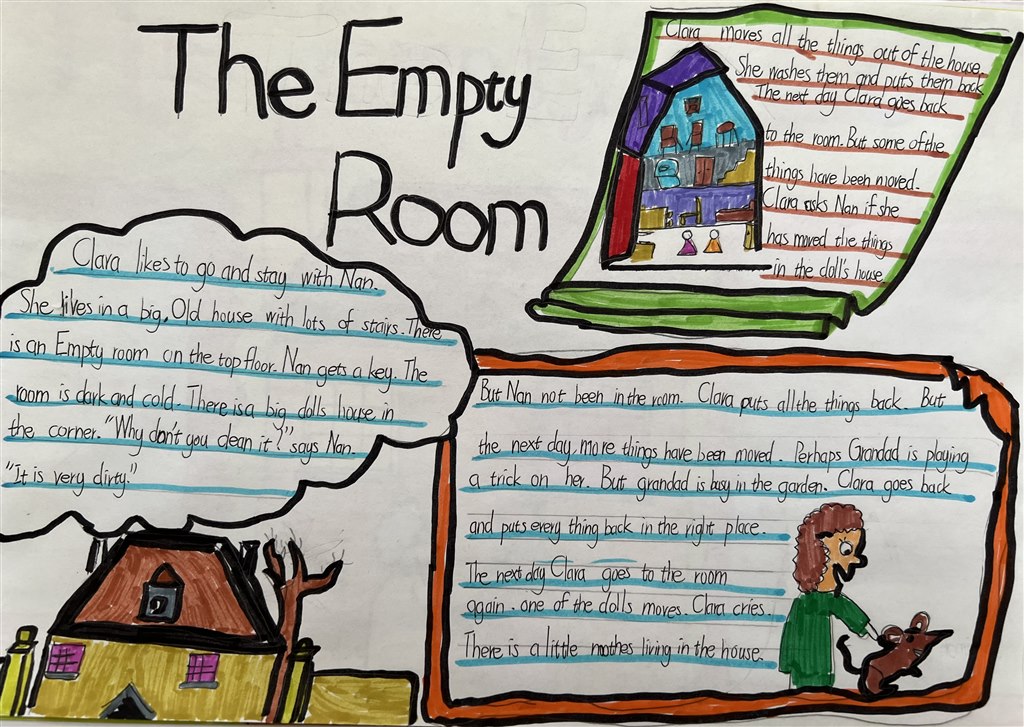 The Empty
Room
Clara likes to go and stay with Nan.
She lives in a big, Old house with lots of stairs. There
is an Empty room on the top floor. Nan gets a key. The
room is dark and cold. There is a big dolls house in
the corner. "Why don't you clean it?" says Nan.
"It is very dirty."
Clara moves all the things out of the house.
She washes them and puts them back
The next day Clara goes back
to the room. But some of the
things have been moved.
Clara asks Nan if she
has moved the things
in the doll's house.
But Nan not been in the room. Clara puts all the things back. But
the next day, more things have been moved. Perhaps Grandad is playing
a trick on her. But grandad is busy in the garden. Clara goes back
and puts every thing back in the right place.
The next day Clara goes to the room
again. one of the dolls moves. Clara cries.
There is a little mothes living in the house.